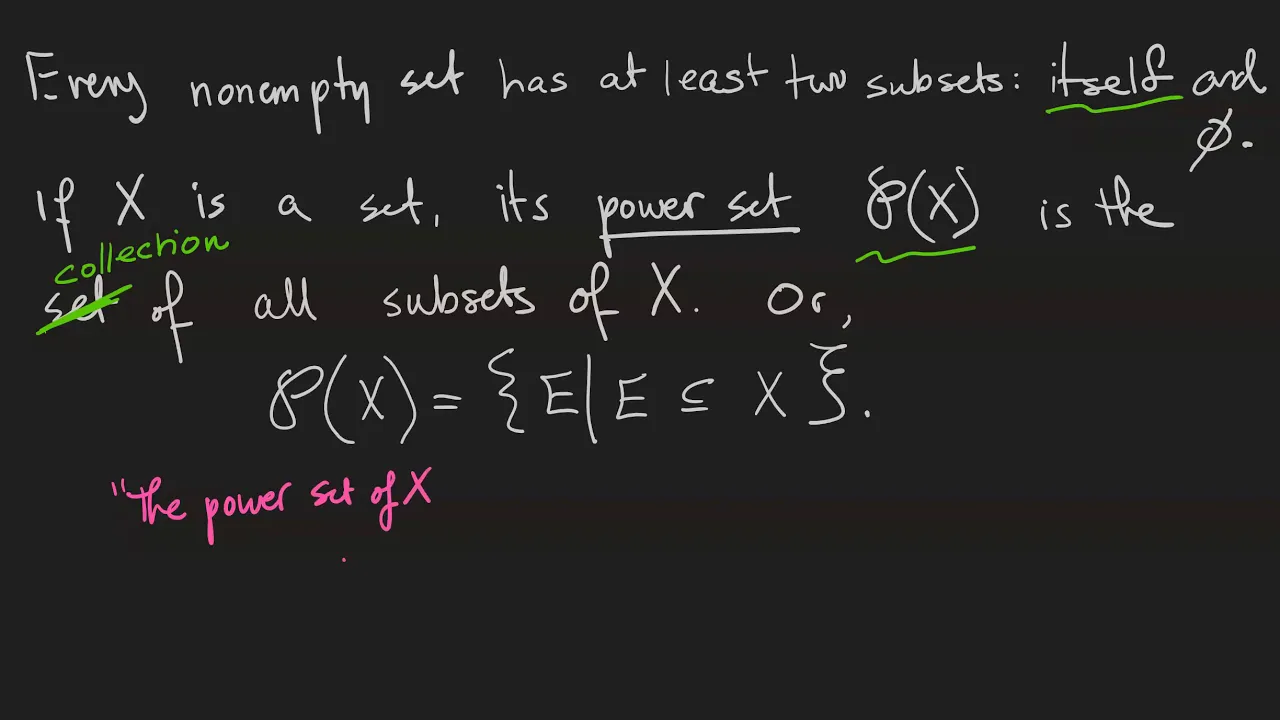 Every nonempty set has at least two subsets: itself and
∅.
If X is a set, its power set ℘(X) is the
collection
set of all subsets of X. Or,
℘(X) = {E | E ⊆ X}.
"The power set of X